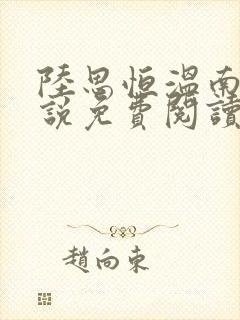 陸思恒溫南
説免費閱讀
趙向東